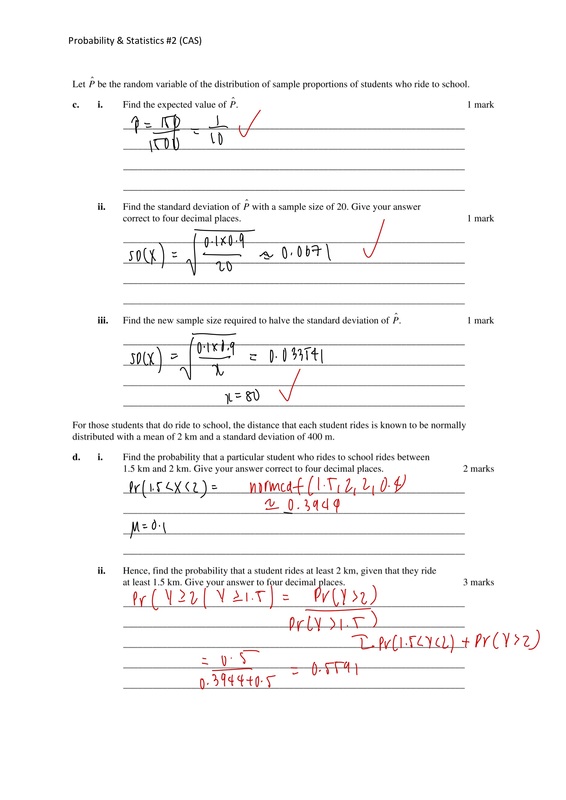 Probability & Statistics #2 (CAS)
Let P̂ be the random variable of the distribution of sample proportions of students who ride to school.
c. i. Find the expected value of P̂. 1 mark
p = 150/1500 = 1/10 ✓
ii. Find the standard deviation of P̂ with a sample size of 20. Give your answer
correct to four decimal places. 1 mark
SD(X) = √(0.1×0.9/20) ≈ 0.0671 ✓
iii. Find the new sample size required to halve the standard deviation of P̂. 1 mark
SD(X) = √(0.1×0.9/x) = 0.033541
x = 80 ✓
For those students that do ride to school, the distance that each student rides is known to be normally
distributed with a mean of 2 km and a standard deviation of 400 m.
d. i. Find the probability that a particular student who rides to school rides between
1.5 km and 2 km. Give your answer correct to four decimal places. 2 marks
Pr(1.5<X<2) = normcdf(1.5, 2, 2, 0.4)
≈ 0.3944
μ = 0.1
ii. Hence, find the probability that a student rides at least 2 km, given that they ride
at least 1.5 km. Give your answer to four decimal places. 3 marks
Pr(Y≥2 | Y≥1.5) = Pr(Y>2)/Pr(Y>1.5)
Pr(1.5<Y<2) + Pr(Y>2)
= 0.5/0.3944+0.5 = 0.5591